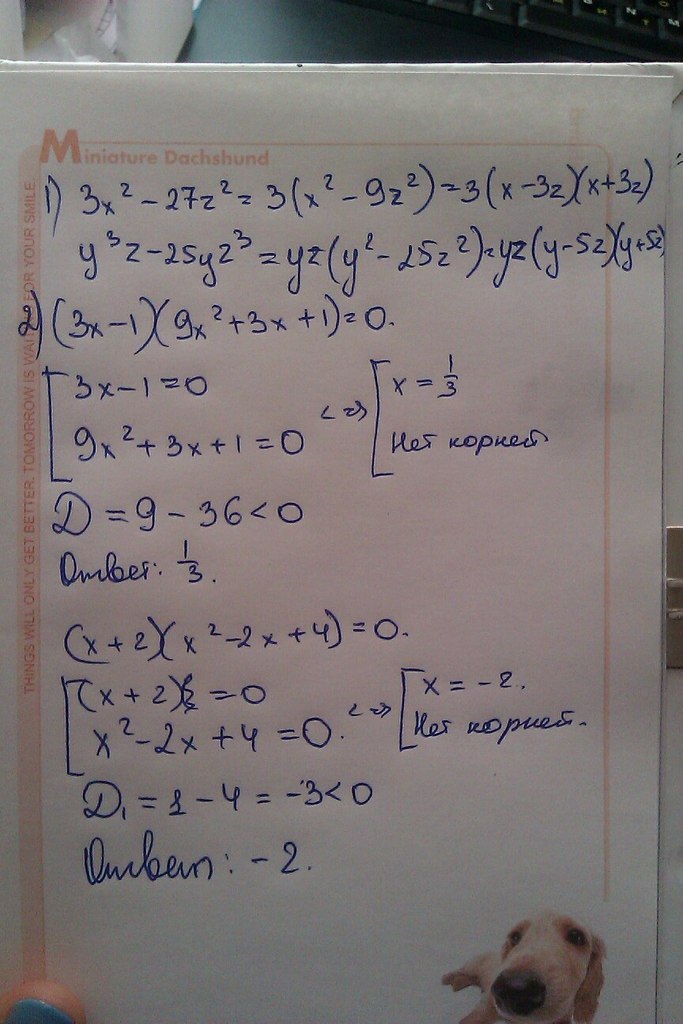 Miniature Dachshund
THINGS WILL ONLY GET BETTER. TOMORROW IS WAITING FOR YOUR SMILE
1) 3x² - 27z² = 3(x² - 9z²) = 3(x - 3z)(x + 3z)
y³z - 25yz³ = yz(y² - 25z²) = yz(y - 5z)(y + 5z)
2) (3x - 1)(9x² + 3x + 1) = 0.
[ 3x - 1 = 0 <=> [ x = 1/3
9x² + 3x + 1 = 0 Нет корней
D = 9 - 36 < 0
Ответ: 1/3.
(x + 2)(x² - 2x + 4) = 0.
[ (x + 2) = 0 <=> [ x = -2.
x² - 2x + 4 = 0. Нет корней.
D₁ = 1 - 4 = -3 < 0
Ответ: -2.